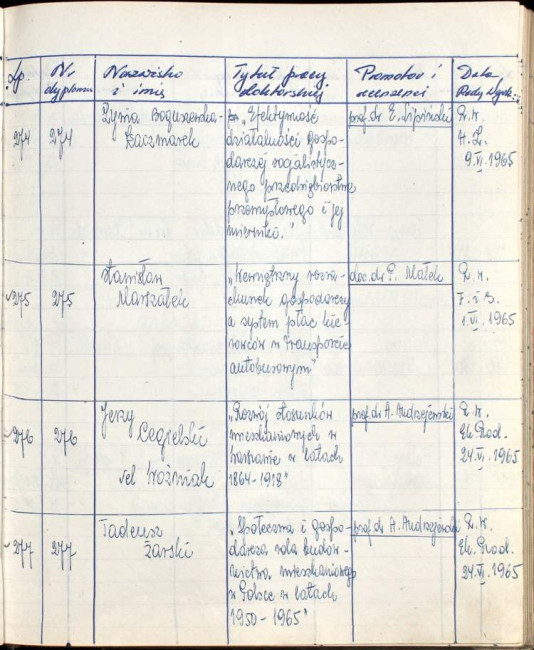 Lp.
Nr
dyplomu
Nazwisko
i imię
Tytuł pracy
doktorskiej
Promotor i
recenzenci
Data
Rady Wydz.
274
274
Boguszewska-
Kaczmarek
pt. „Efektywność
działalności gospo-
darczej socjalistycz-
nego przedsiębiorstwa
przemysłowego i jej
mierniki."
prof. dr E. Lipiński
R. W.
H. Z.
9.VI.1965
275
275
Stanisław
Marszałek
„Wewnętrzny rozra-
chunek gospodarczy
a system płac kie-
rowców w transporcie
autobusowym"
doc. dr P. Małek
R. W.
F. i S.
1.VI.1965
276
276
Jerzy
Cegielski
vel Woźniak
„Rozwój stosunków
mieszkaniowych w
Warszawie w latach
1864-1918"
prof. dr A. Andrzejewski
R. W.
Ek. Prod.
24.VI.1965
277
277
Tadeusz
Żarski
„Społeczna i gospo-
darcza rola budow-
nictwa mieszkaniowego
w Polsce w latach
1950-1965"
prof. dr A. Andrzejewski
R. W.
Ek. Prod.
24.VI.1965